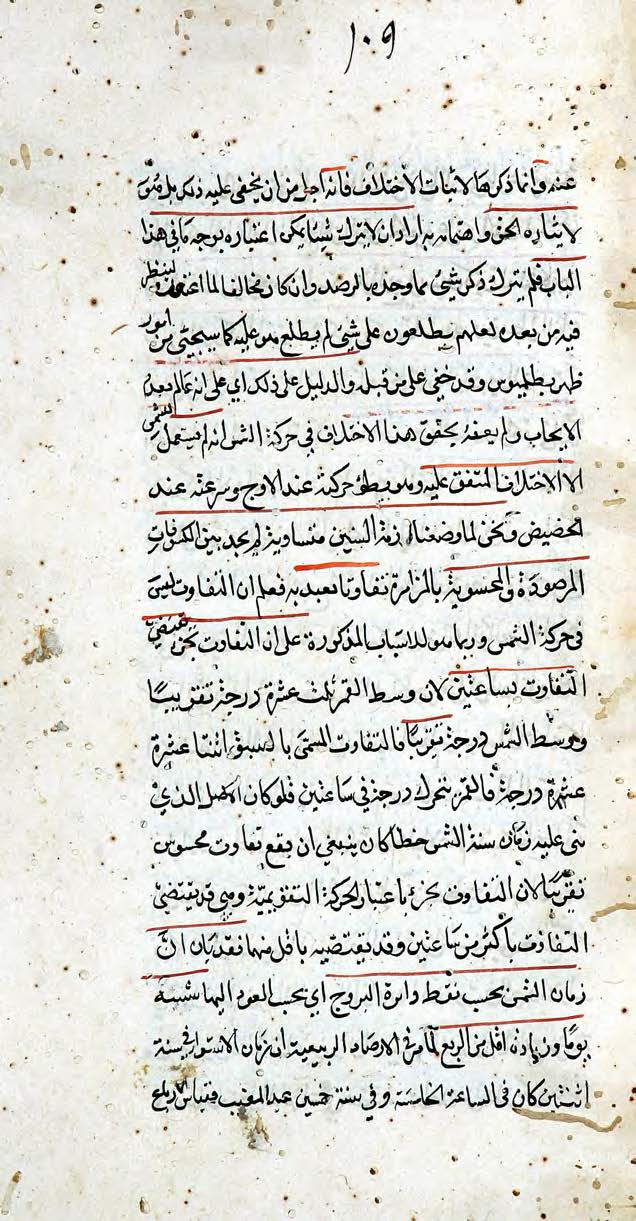 ١٠٩
عنه وانما ذكرها لاثبات الاختلاف فانه اجل من ان يخفى عليه ذلك بل هو
لايثاره الحق واهتمامه به اراد ان لا يترك شيئا يمكن اعتباره بوجه ما في هذا
الباب فلم يترك ذكر شيئ مما وجده بالرصد وان كان مخالفا لما اعتقده ولينظر
فيه من بعده لعلهم يطلعون على شيئ لم يطلع هو عليه كما سيجيئ من امور
ظهر بطلميوس وقد خفي على من قبله والدليل على ذلك اي على انه عالم بعدم
الايجاب ولم يعتقد بحقق هذا الاختلاف في حركة الشمس انه لم يستعمل للشمس
الا الاختلاف المتفق عليه وهو بطؤ حركته عند الاوج وسرعته عند
الحضيض ونحن لما وضعنا ازمنة السنين متساوية لم نجد بين الكسوفات
المرصودة والمحسوبة بالمزاىرة تفاوتا نعبد به فعلم ان التفاوت ليس
في حركة الشمس وربما هو للاسباب المذكورة على ان التفاوت بجزء يقتضي
التفاوت بساعتين لان وسط القمر ثلث عشرة درجة تقريبا
ووسط الشمس درجة تقريبا فالتفاوت المسمى بالسبق اثنتا عشرة
عشرة درجة فالقمر يتحرك درجة في ساعتين فلو كان الاصل الذي
بنى عليه زمان سنة الشمس خطا كان ينبغي ان يقع تفاوت محسوس
تقريبا لان التفاوت بجزء باعتبار الحركة التقويمية وهي قد يقتضي
التفاوت باكثر من ساعتين وقد يقتضيه باقل منهما فقد بان ان
زمان الشمس بحسب نقط دائرة البروج اي بحسب العود اليها شسه
يوما وزيادة اقل من الربع لما مر في الارصاد الربيعية ان زمان الاستواء في سنة
اثنتين كان في الساعة الخامسة وفي سنة خمسين عند المغيب فقياس الارباع